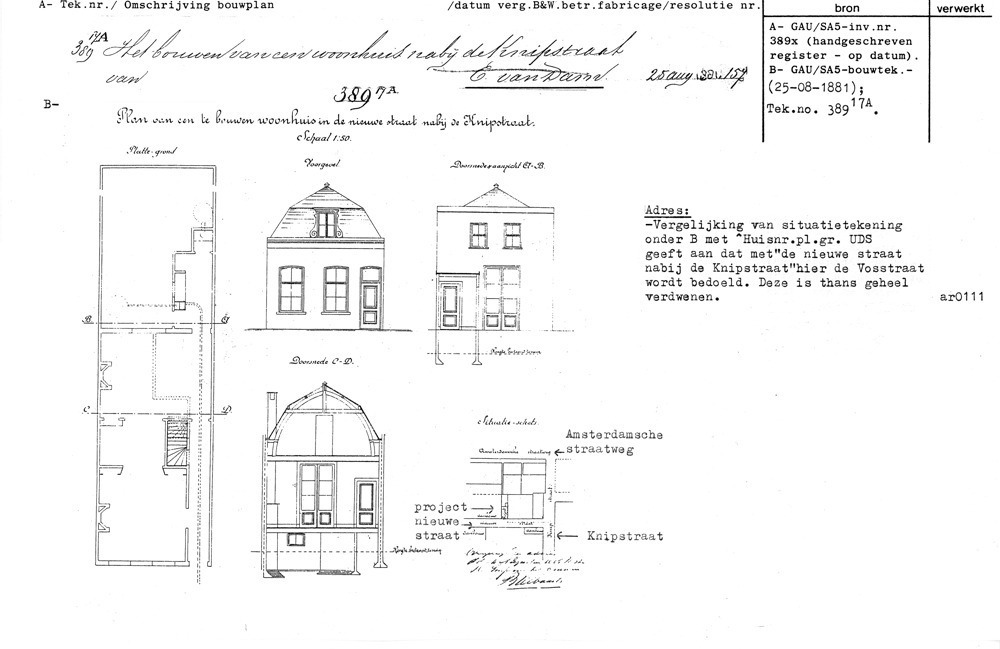 A- Tek.nr./ Omschrijving bouwplan /datum verg.B&W.betr.fabricage/resolutie nr.
bron
verwerkt
389 17A Het bouwen van een woonhuis nabij de Knipstraat
van E. van Dam. 25 aug
A- GAU/SA5-inv.nr.
389x (handgeschreven
register - op datum).
B- GAU/SA5-bouwtek.-
(25-08-1881);
Tek.no. 389 17A.
B-
389 17A
Plan van een te bouwen woonhuis in de nieuwe straat nabij de Knipstraat.
Schaal 1:50.
Platte-grond
Voorgevel
Doorsnede aanzicht A-B.
B
A
C
D
Adres:
-Vergelijking van situatietekening
onder B met ^Huisnr.pl.gr. UDS
geeft aan dat met"de nieuwe straat
nabij de Knipstraat"hier de Vosstraat
wordt bedoeld. Deze is thans geheel
verdwenen.
ar0111
Doorsnede C-D.
Situatie-schets.
Amsterdamsche straatweg
Amsterdamsche
straatweg
project
nieuwe
straat
nieuwe straat
Knip straat
Knipstraat